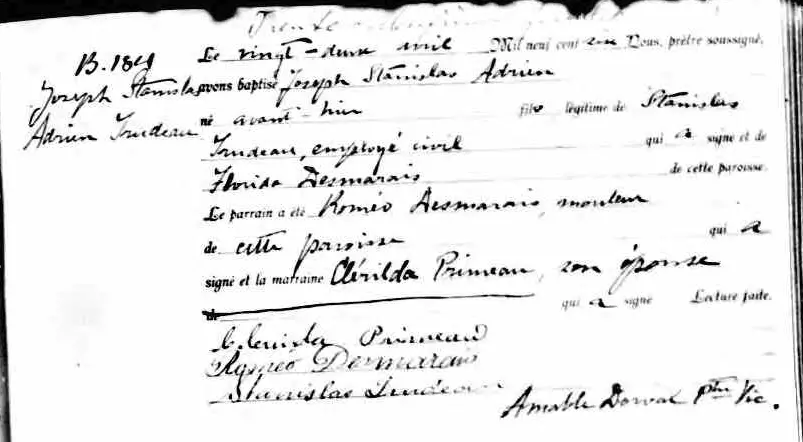 B. 1841
Joseph Stanislas
Adrien Trudeau
Trente
Le vingt-deux mil Mil neuf cent six Nous, prêtre soussigné,
avons baptisé Joseph Stanislas Adrien
né avant-hier fils légitime de Stanislas
Trudeau, employé civil qui a signé et de
Florida Desmarais de cette paroisse.
Le parrain a été Roméo Desmarais, mouleur
de cette paroisse qui a
signé et la marraine Clérilda Primeau, son épouse
de qui a signé Lecture faite.
Clerilda Primeau
Roméo Desmarais
Stanislas Trudeau
Amable Dorval Ptre Vic.